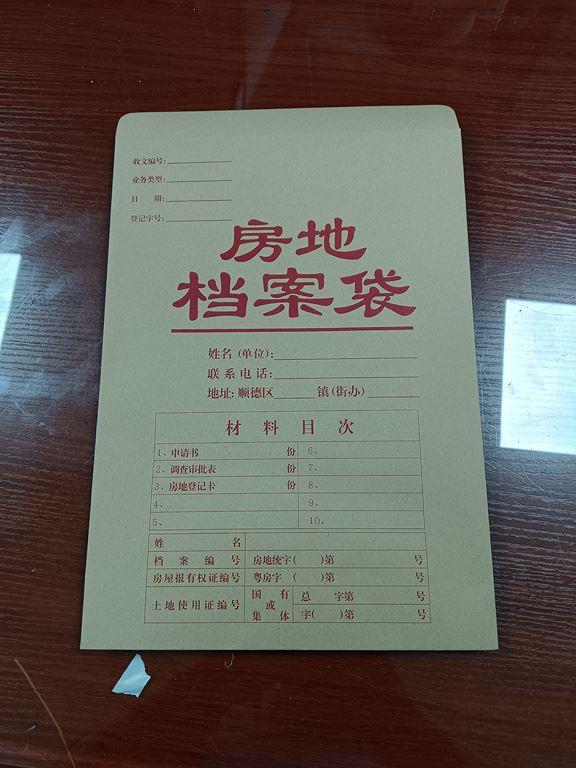 收文编号:
业务类型:
日 期:
登记字号:
房地
档案袋
姓名(单位):
联系电话:
地址: 顺德区 镇(街办)
材料目次
1、申请书 份 6、
2、调查审批表 7、
3、房地登记卡 份 8、
4、 9、
5、 10、
姓 名
档案编号 房地统字( )第 号
房屋报有权证编号 粤房字 ( )第 号
土地使用证编号 国有或集体 总 字第 号
字( )第 号